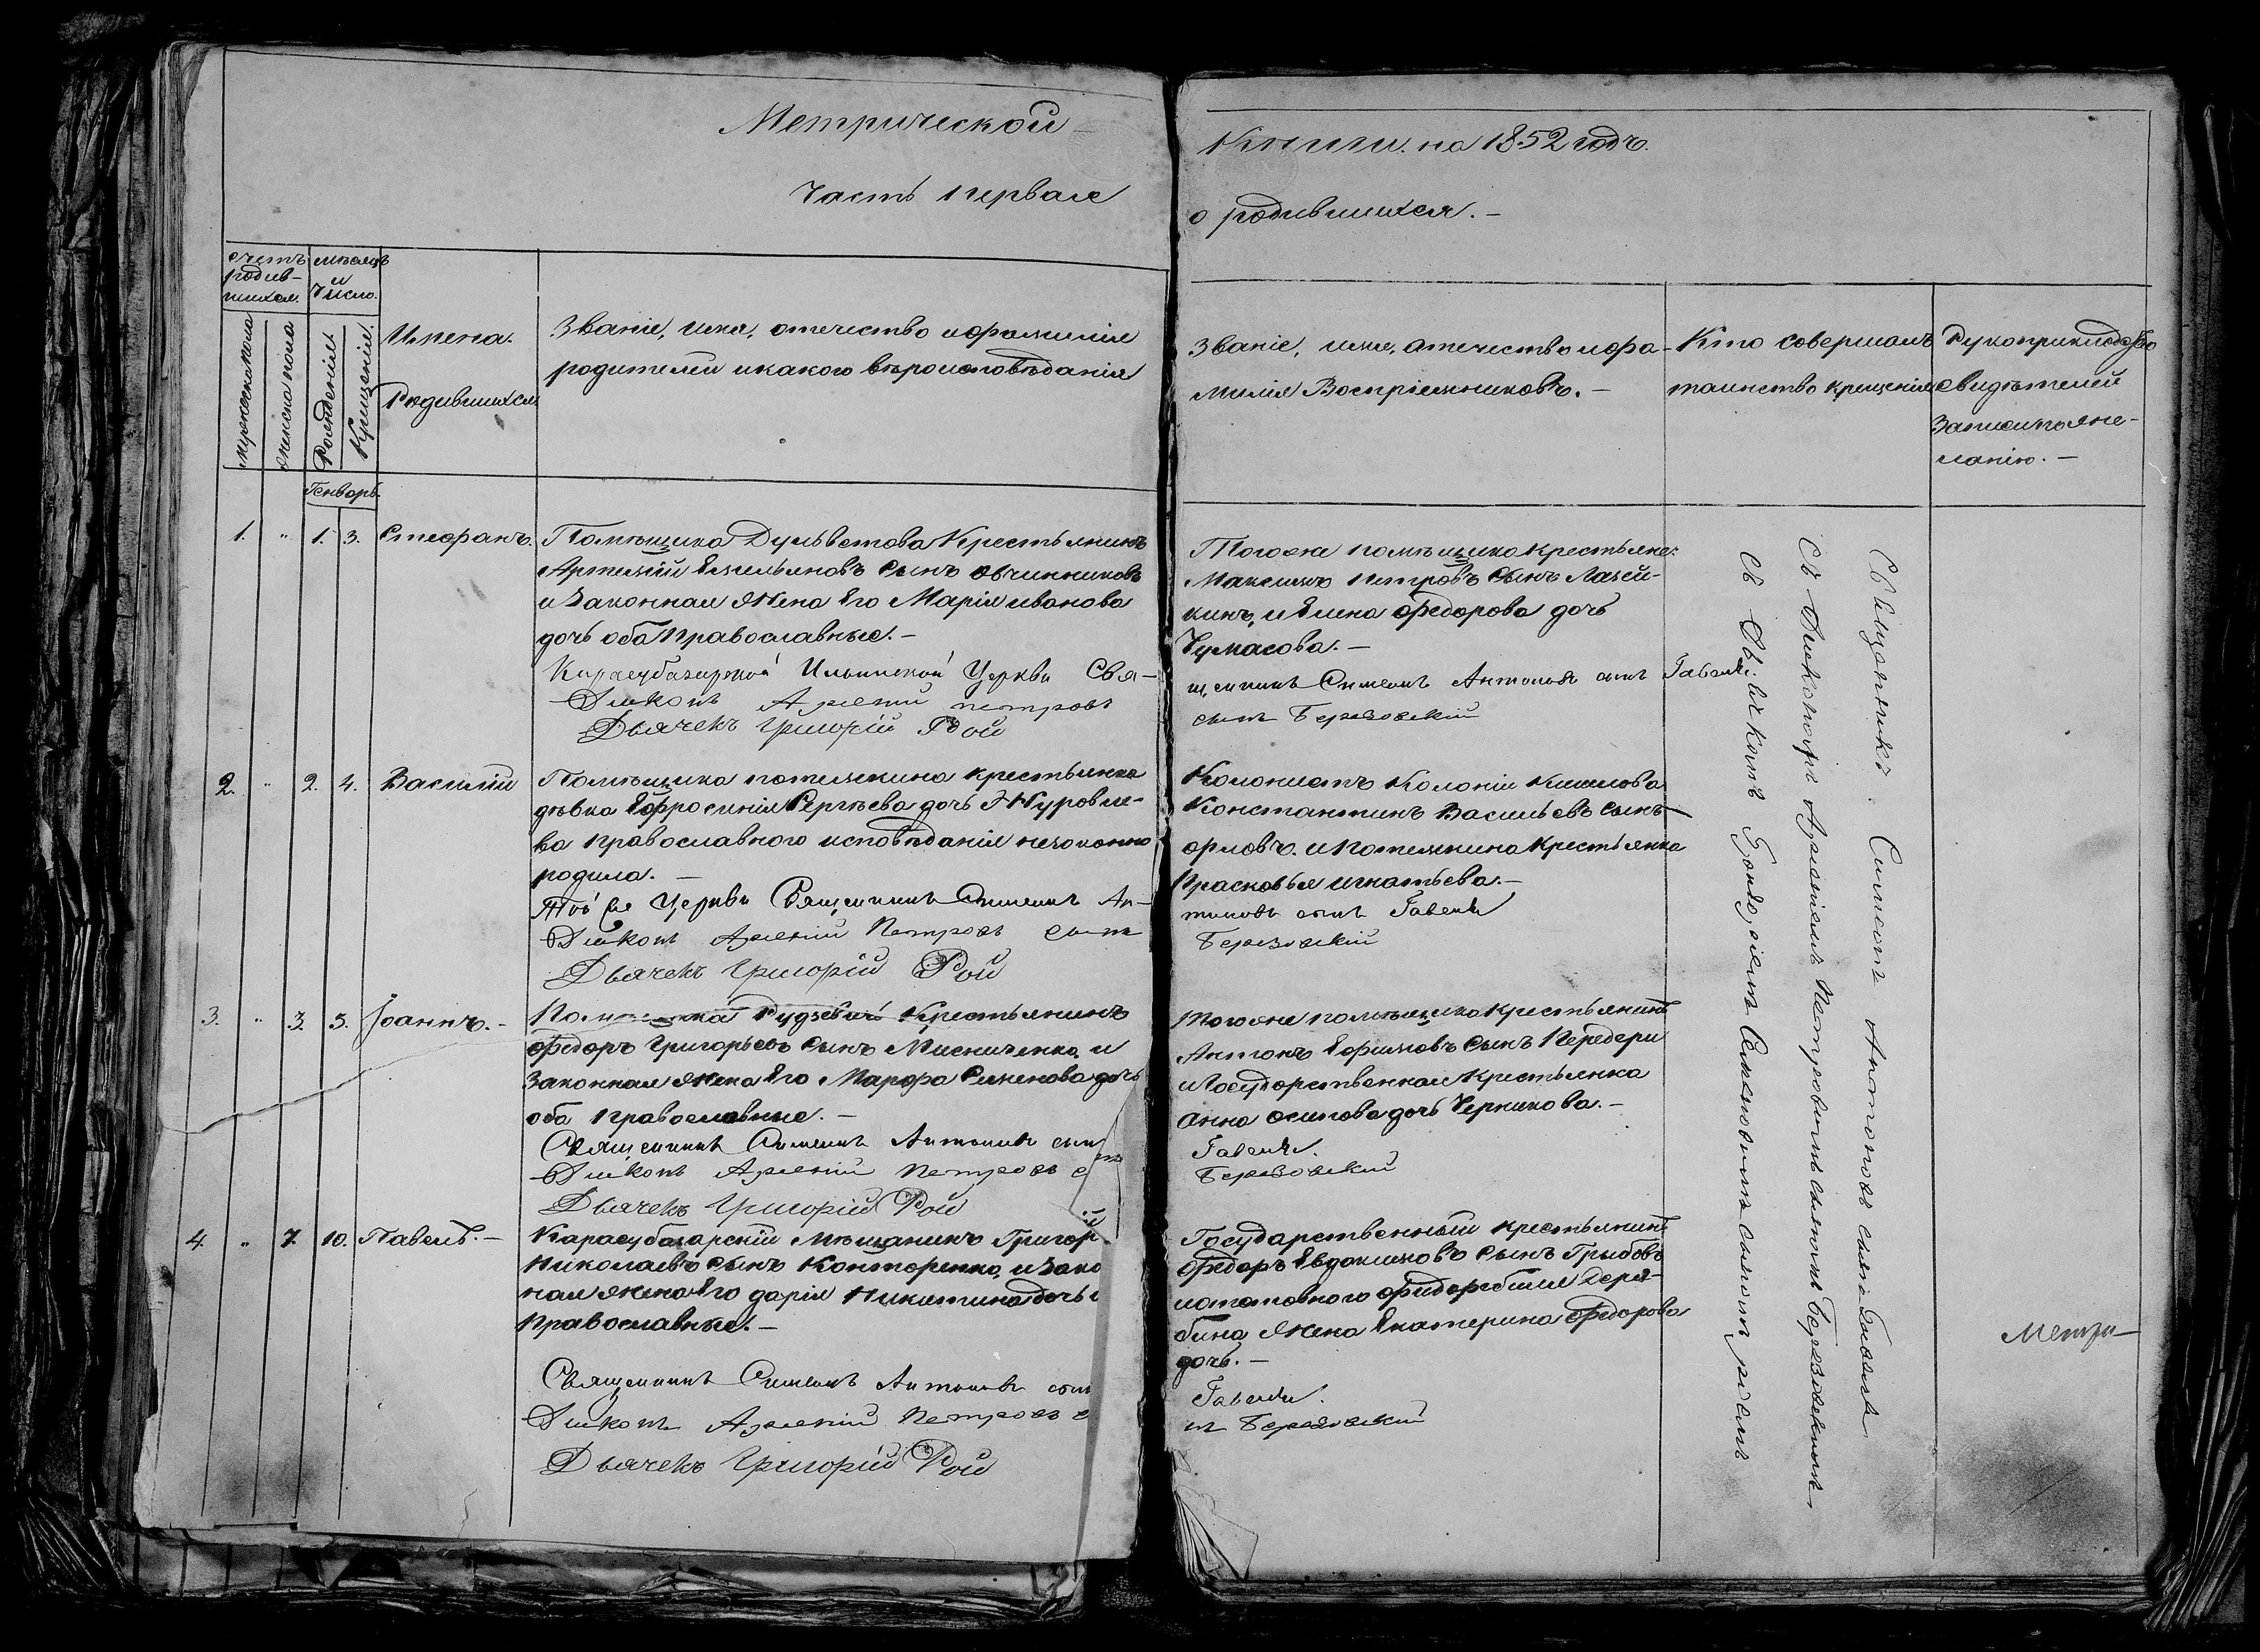 Метрической
Часть первая
Счетъ
родив-
шихся.
Мѣсяцъ
и
Число.
Мужеска пола
Женска пола
Рожденія
Крещенія.
Имена.
Родившихся
Званіе, имя, отечество и фамилія
родителей и какого вѣроисповѣданія
Генварь.
1. " 1. 3. Стефанъ.
Помѣщика Крестьянинъ
Артемій Емельяновъ сынъ Овчинниковъ
и Законная Жена Его Марія Иванова
дочь оба Православные.—
Карасубазарской Ильинской Церкви Свя-
Діаконъ Арсеній Петровъ
Дьячекъ Григорій Рой
2. " 2. 4. Василій
Помѣщика Потемкина крестьянка
дѣвка Ефросинія Сергѣева дочь Журовле-
ва православного исповѣданія незаконно
родила.—
Той же Церкви Священникъ Симеонъ Ан-
Діаконъ Арсеній Петровъ сынъ
Дьячекъ Григорій Рой
3. " 3. 5. Іоаннъ.—
Помѣщика Рудзевичъ Крестьянинъ
Федоръ Григорьевъ сынъ Мисниченко, и
Законная Жена Его Марфа Семенова дочь
оба Православные.—
Священникъ Симеонъ Антоновъ сынъ
Діаконъ Арсеній Петровъ с
Дьячекъ Григорій Рой
4. " 7. 10. Павелъ.—
Карасубазарскій Мѣщанинъ Григорій
Николаевъ сынъ Конторенко, и Зако
ная Жена Его Дарія Никитина дочь
Православные.—
Священникъ Симеонъ Антоновъ сын
Діаконъ Арсеній Петровъ с
Дьячекъ Григорій Рой
Книги на 1852 годъ.
о родившихся.—
Званіе, имя, отечество и фа-
милія Воспріемниковъ.—
Кто совершалъ
таинство крещенія
Рукоприкладство
свидѣтелей
Записи по же-
ланію.—
Тогоже помѣщика крестьяне:
Максимъ Петровъ сынъ Лазей-
кинъ, и Елена Федорова дочь
Чумасова.—
щенникъ Симеонъ Антоновъ сынъ Гавеля
сынъ Березовскій
Колонистъ Колоніи Кишлова
Константинъ Васильевъ сынъ
Орловъ. и Потемкина Крестьянка
Прасковья Игнатьева.—
тоновъ сынъ Гавеля
Березовскій
Тогоже помѣщика крестьянинъ
Антонъ Ефимовъ сынъ Передери
и Государственная Крестьянка
Анна Осипова дочь Черникова.—
Гавеля.
Березовскій
Государственный крестьянинъ
Федоръ Евдокимовъ сынъ Грыбовъ
Деря-
бина Жена Екатерина Федорова
дочь.—
Гавеля.
нъ Березовскій
Священникъ Симеонъ Антоновъ сынъ Гавеля
Съ Діакономъ Арсеніемъ Петровымъ сыномъ Березовскимъ.
сыномъ
Метри-